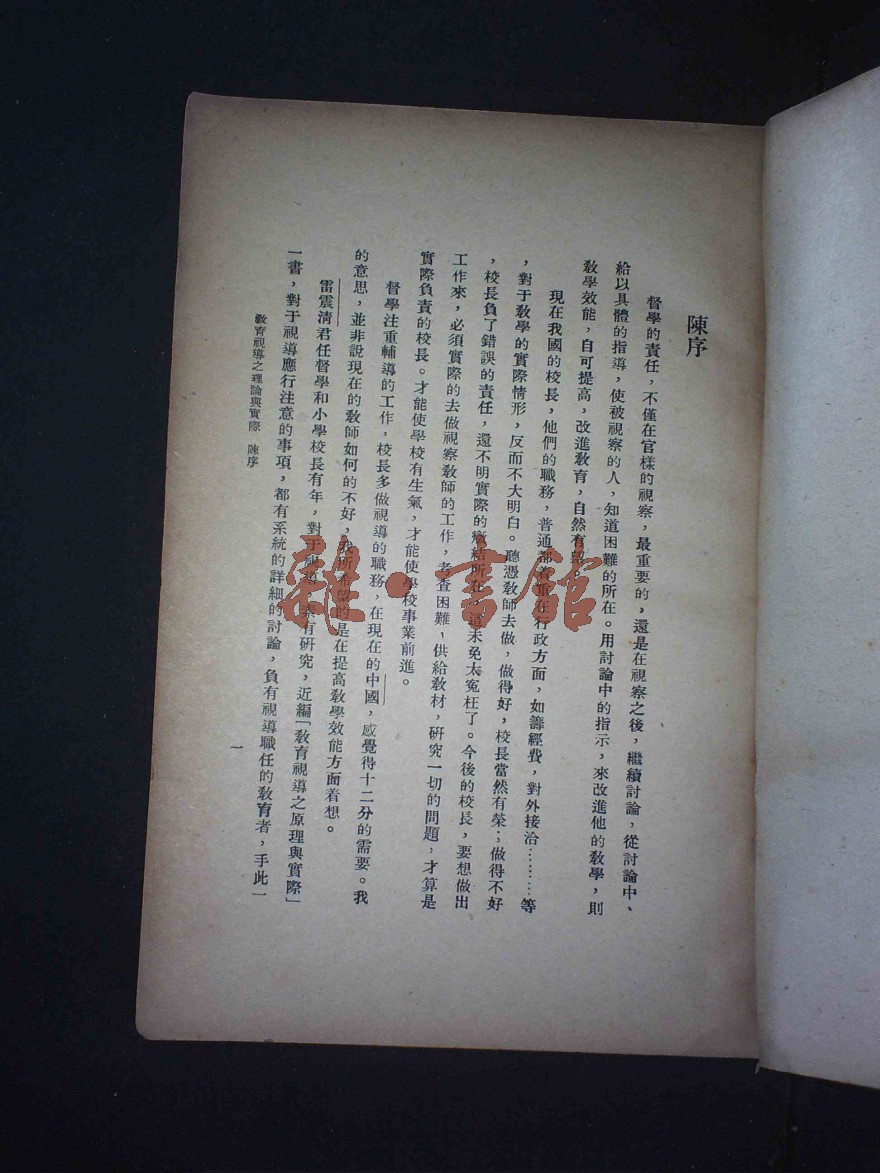 陳序
督學的責任，不僅在官樣的視察，最重要的，還是在視察之後，繼續討論，從討論中、
給以具體的指導，使被視察的人，知道困難的所在。用討論中的指示，來改進他的敎學，則
敎學效能，自可提高，改進敎育，自然有
現在我國的校長，他們的職務，普通都在行政方面，如籌經費，對外接洽………等
，對于敎學的實際情形，反而不大明白。聽憑敎師去做，做得好，校長當然有榮；做得不好
，校長負了錯誤的責任，還不明實際的癥結所在，這未免太寃枉了。今後的校長，要想做出
工作來，必須實際的去做視察敎師的工作，考查困難，供給敎材，硏究一切的問題，才算是
實際負責的校長。才能使學校有生氣，才能使學校事業前進。
督學注重輔導的工作，校長多做視導的職務，在現在的中國，感覺得十二分的需要。我
的意思，並非說現在的敎師如何的不好，我所希望的是在提高敎學效能方面着想。
雷震清君任督學和小學校長有年，對于視導，素有硏究，近編「敎育視導之原理與實際」
一書，對于視導應行注意的事項，都有系統的詳細的討論，負有視導職任的敎育者，手此一
敎育視導之理論與實際　陳序
一
雜·書館